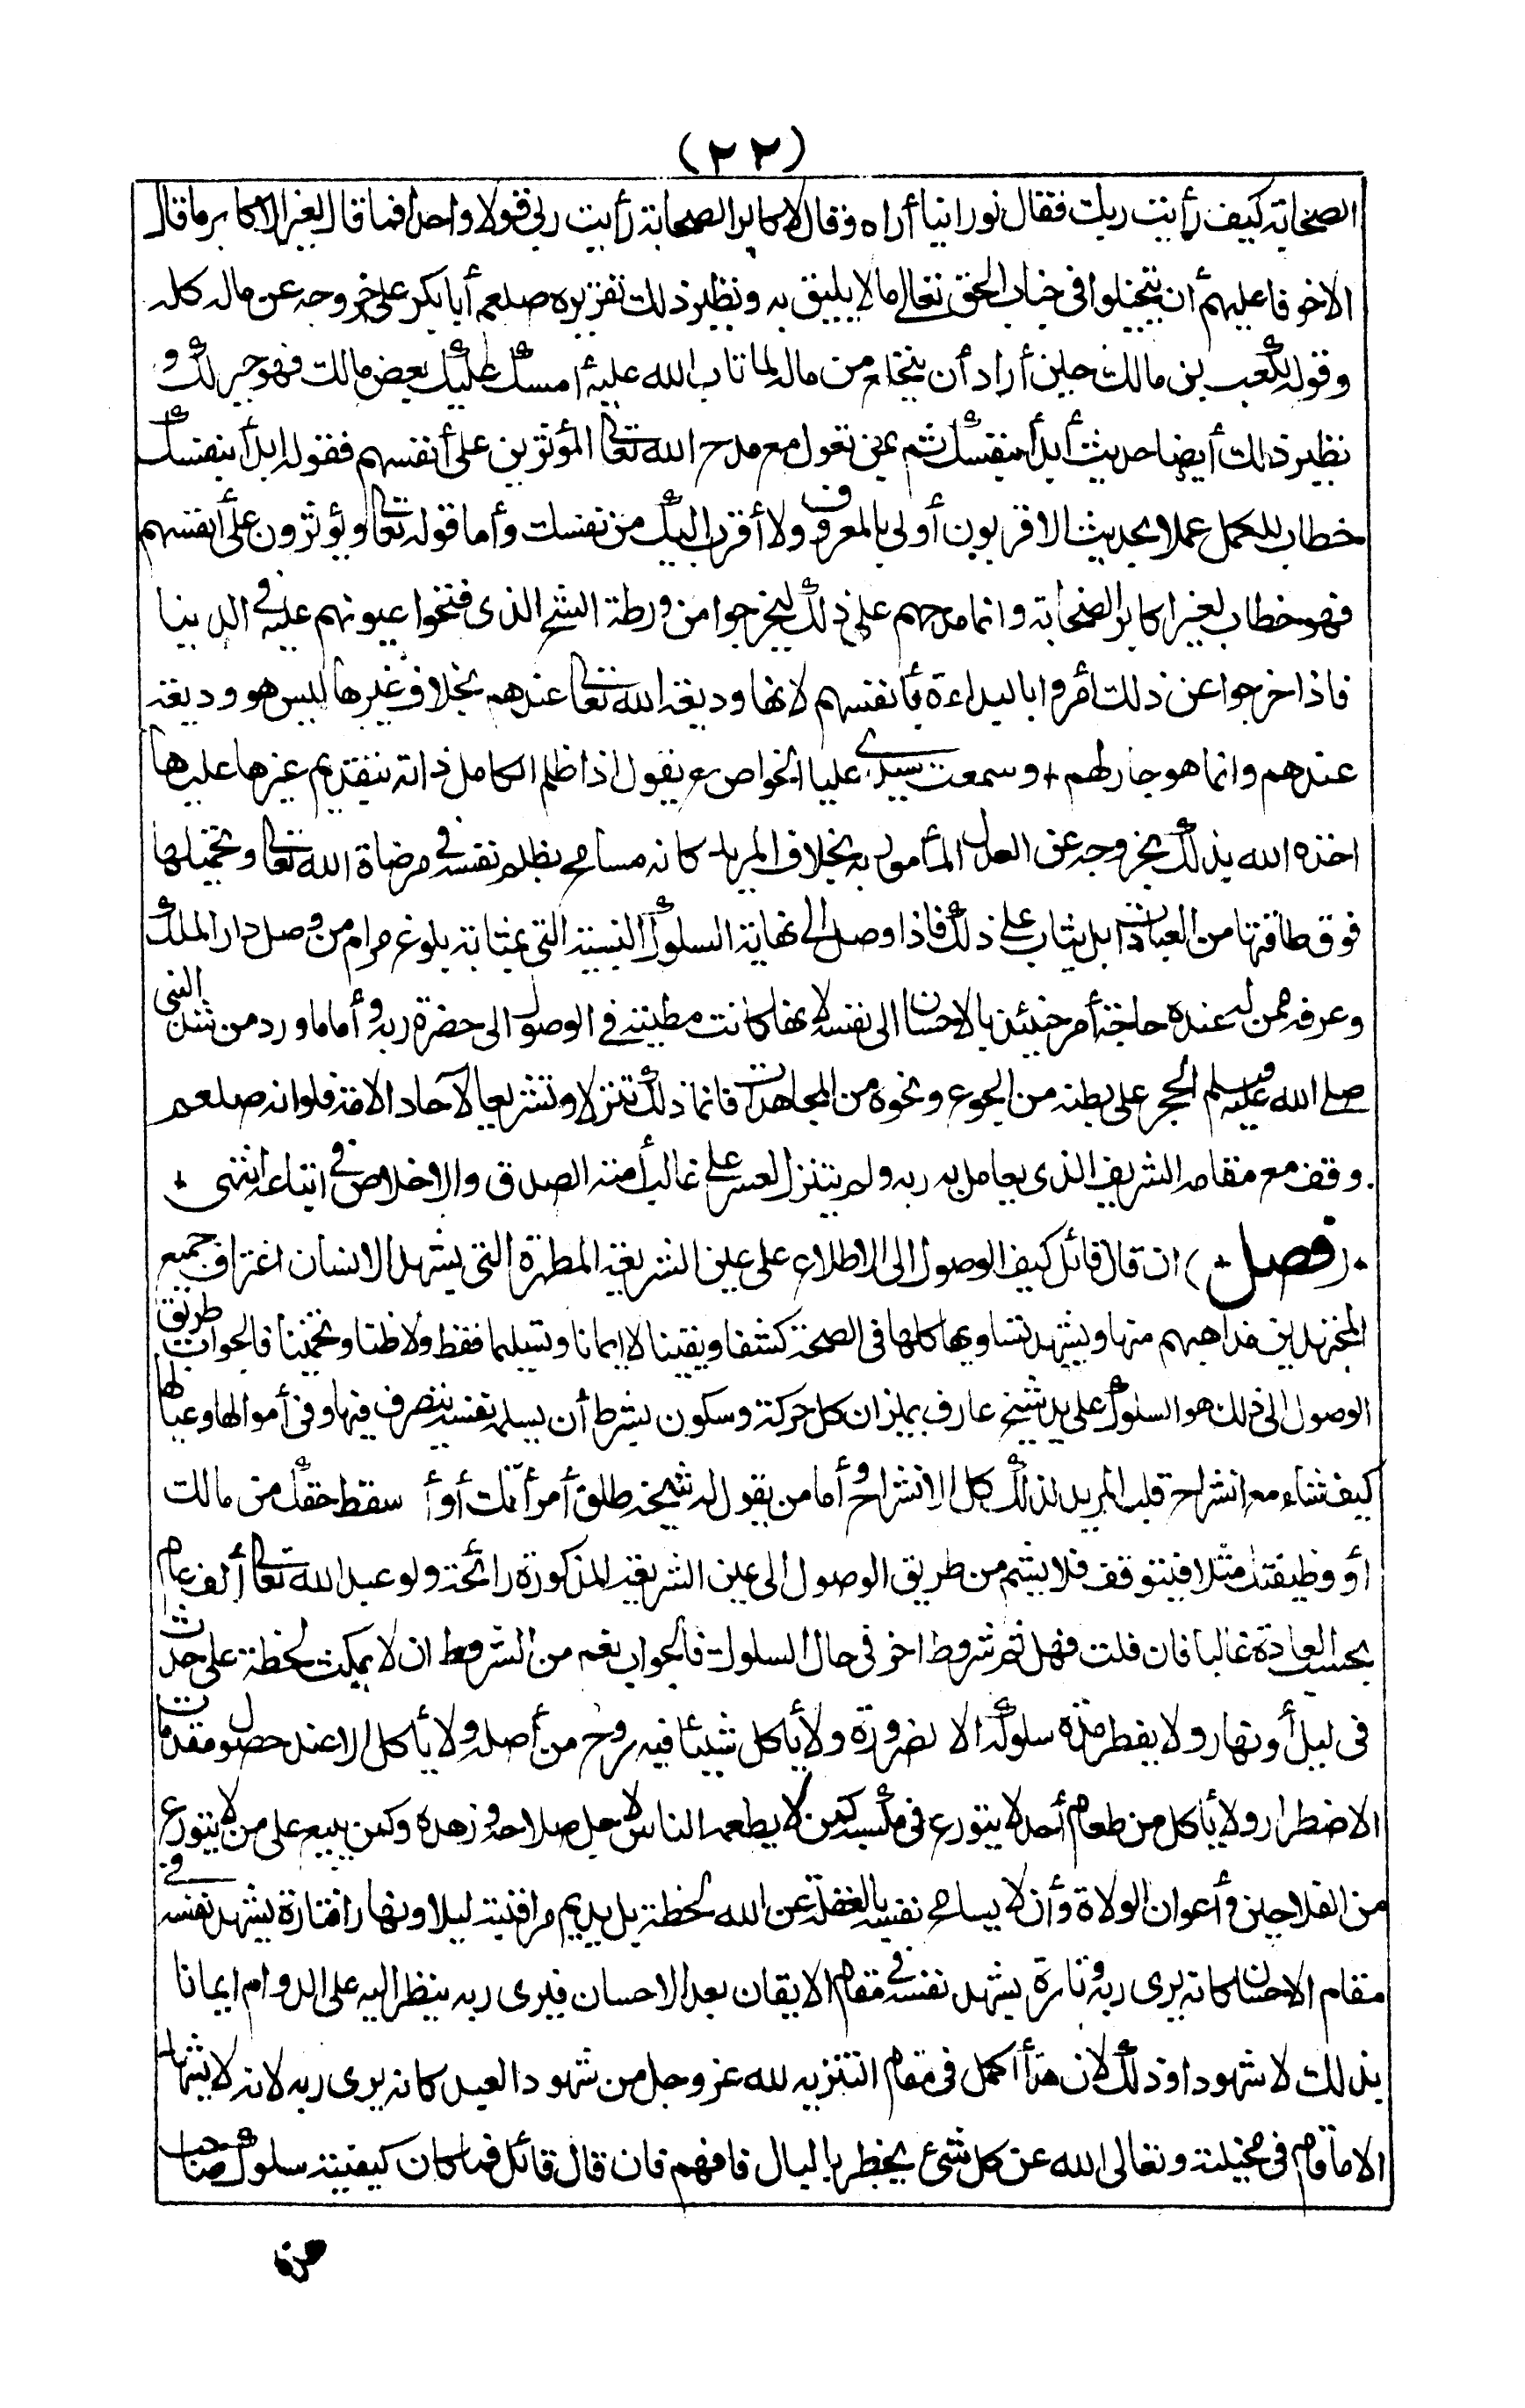 (٢٢)
الصحابة كيف رأيت ربك فقال نورانيا أراه وقال لاكابر الصحابة رأيت ربى قولا واحدا فما قال لغير الاكابر ما قال
الاخوفا عليهم أن يتخيلوا فى جناب الحق تعالى ما لا يليق به ونظير ذلك تقريره صلعم أبا بكر على خروجه عن ماله كله
وقوله لكعب بن مالك حين أراد أن ينخلع من ماله لما تاب الله عليه أمسك عليك بعض مالك فهو خير لك و
نظير ذلك أيضا حديث أبدأ بنفسك ثم بمن تعول مع مدح الله تعالى المؤثرين على أنفسهم فقوله ابدأ بنفسك
خطاب للكمل عملا بحديث الاقربون أولى بالمعروف ولا أقرب اليك من نفسك وأما قوله تعالى ويؤثرون على أنفسهم
فهو خطاب لغير اكابر الصحابة وانما مدحهم على ذلك ليخرجوا من ورطة الشح الذى فتحوا عيونهم عليه فى الدنيا
فاذا خرجوا عن ذلك أمروا بالبداءة بأنفسهم لانها وديعة الله تعالى عندهم بخلاف غيرها ليس هو وديعة
عندهم وانما هو جار لهم + وسمعت سيدى عليا الخواص رح يقول اذا ظلم الكامل ذاته بتقديم غيرها عليها
اخذه الله بذلك بخروجه عن العدل المأمور به بخلاف المريد كانه مسامح بظلم نفسه فى مرضاة الله تعالى وتحميلها
فوق طاقتها من العبادات بل يثاب على ذلك فاذا وصل الى نهاية السلوك النسبية التى بمثابة بلوغ مرام من وصل دار الملك
وعرفه ممن له عنده حاجة أمر حينئذ بالاحسان الى نفسه لانها كانت مطيته فى الوصول الى حضرة ربه وأما ما ورد من شد النبى
صلى الله عليه وسلم الحجر على بطنه من الجوع ونحوه من المجاهدات فانما ذلك تنزلا وتشريعا لآحاد الامة فلو انه صلعم
وقف مع مقامه الشريف الذى يعامل به ربه ولم يتنزل لعسر على غالب أمته الصدق والاخلاص فى اتباعه انتهى +
+ (فصل +) ان قال قائل كيف الوصول الى الاطلاع على عين الشريعة المطهرة التى يشهد الانسان اغتراف جميع
المجتهدين مذاهبهم منها ويشهد تساويها كلها فى الصحة كشفا ويقينا لا ايمانا وتسليما فقط ولا ظنا وتخمينا فالجواب طريق
الوصول الى ذلك هو السلوك على يد شيخ عارف بميزان كل حركة وسكون بشرط أن يسلمه نفسه يتصرف فيها وفى أموالها وعيالها
كيف شاء مع انشراح قلب المريد لذلك كل الانشراح وأما من يقول له شيخه طلق أمرأتك أو أ سقط حقك من مالك
أو وظيفتك مثلا فيتوقف فلا يشم من طريق الوصول الى عين الشريعة المذكورة رائحة ولو عبد الله تعالى ألف عام
بحسب العادة غالبا فان قلت فهل ثم شروط اخر فى حال السلوك فالجواب نعم من الشروط ان لا يمكث لحظة على حدث
فى ليل أو نهار ولا يفطر مدة سلوكه الا لضرورة ولا يأكل شيئا فيه روح من أصله ولا يأكل الا عند حصول مقدمات
الاضطرار ولا يأكل من طعام أحد لا يتورع فى مكسبه كمن لا يطعمه الناس لاجل صلاحه وزهده وكمن يبيع على من لا يتورع
من الفلاحين وأعوان الولاة وأن لا يسامح نفسه بالغفلة عن الله لحظة بل يديم مراقبته ليلا ونهارا فتارة يشهد نفسه فى
مقام الاحسان كانه يرى ربه وتارة يشهد نفسه فى مقام الايقان بعد الاحسان فيرى ربه ينظر اليه على الدوام ايمانا
بذلك لا شهودا وذلك لان هذا أكمل فى مقام التنزيه لله عز وجل من شهود العبد كانه يرى ربه لانه لا يشهد
الا ما قام فى مخيلته وتعالى الله عن كل شئ يخطر بالبال فافهم فان قال قائل فما كان كيفية سلوك صاحب